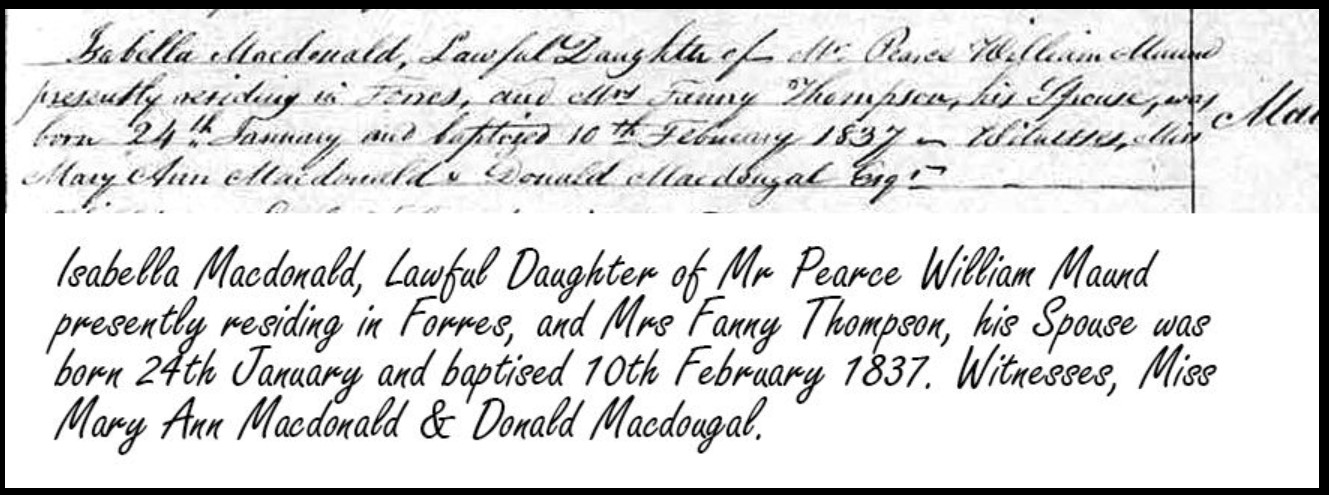 Isabella Macdonald, Lawful Daughter of Mr Pearce William Maund
presently residing in Forres, and Mrs Fanny Thompson, his Spouse, was
born 24th January and baptised 10th February 1837 – Witnesses, Miss
Mary Ann Macdonald & Donald Macdougal Esqr
Isabella Macdonald, Lawful Daughter of Mr Pearce William Maund
presently residing in Forres, and Mrs Fanny Thompson, his Spouse was
born 24th January and baptised 10th February 1837. Witnesses, Miss
Mary Ann Macdonald & Donald Macdougal.